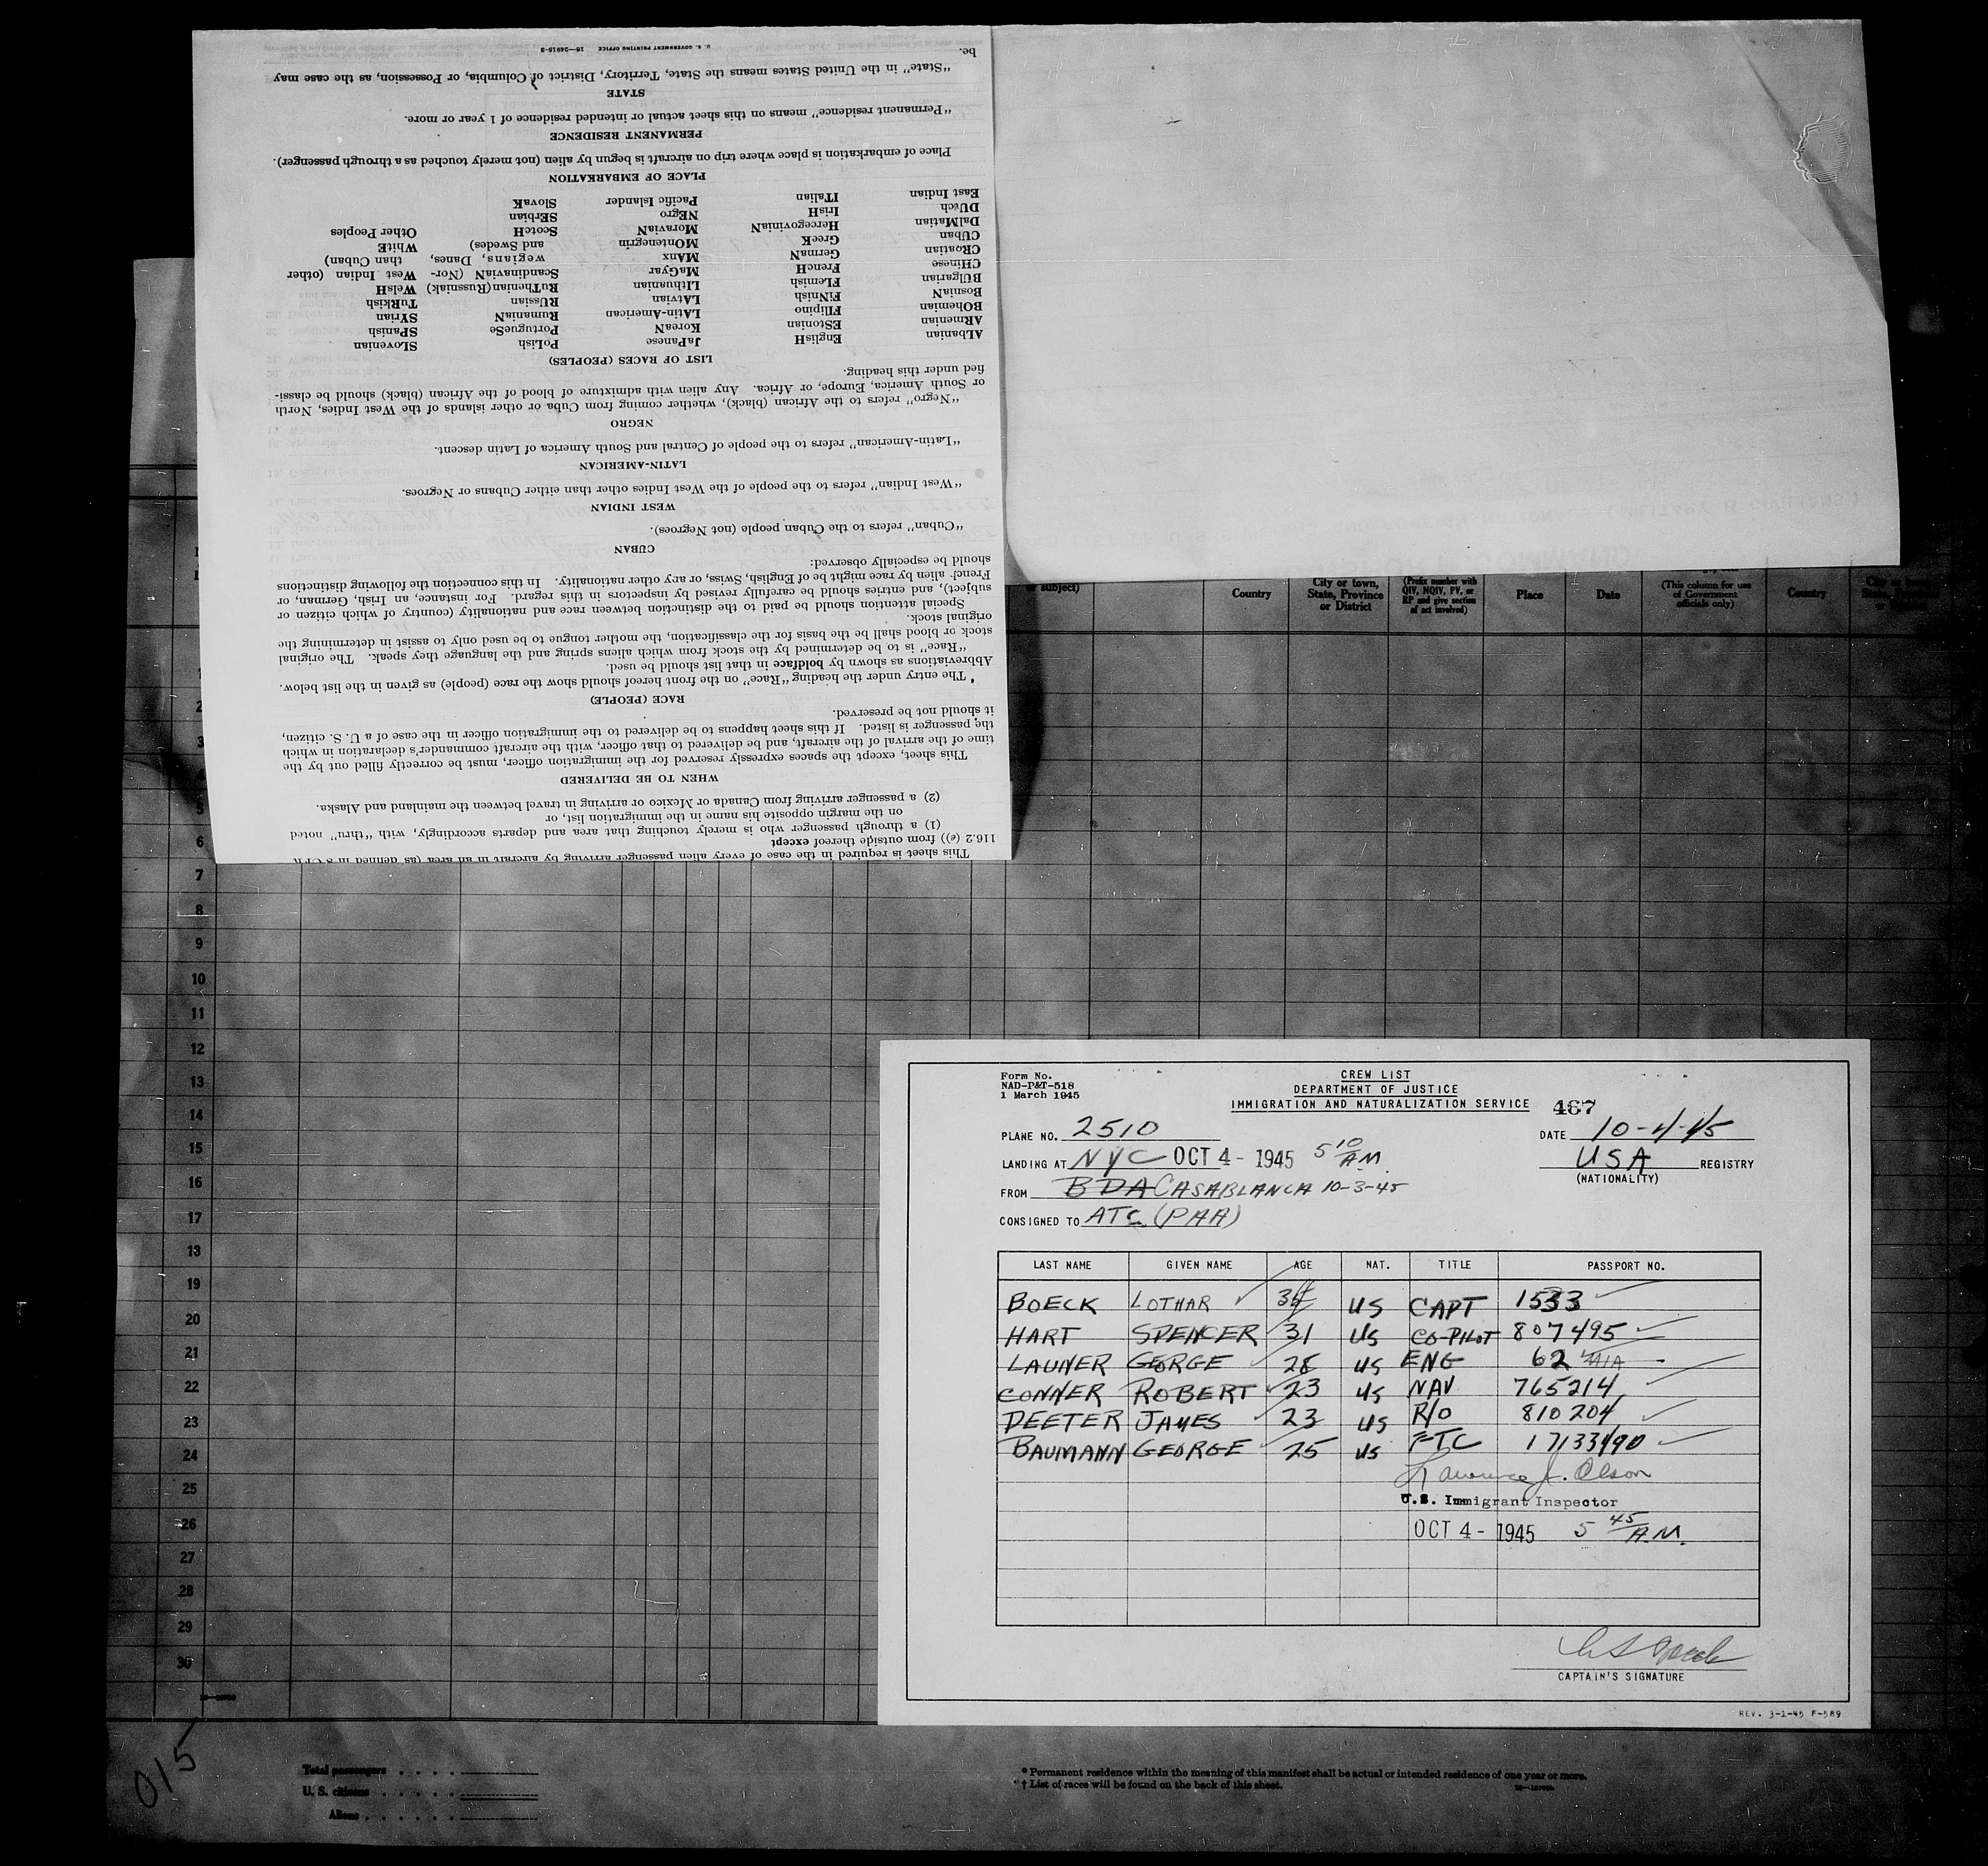 This sheet is required in the case of every alien passenger arriving by aircraft in an area (as defined in 8 CFR
116.2 (e)) from outside thereof except
(1) a through passenger who is merely touching that area and departs accordingly, with “thru” noted
on the margin opposite his name in the immigration list, or
(2) a passenger arriving from Canada or Mexico or arriving in travel between the mainland and Alaska.
WHEN TO BE DELIVERED
This sheet, except the spaces expressly reserved for the immigration officer, must be correctly filled out by the
time of the arrival of the aircraft, and be delivered to that officer, with the aircraft commander's declaration in which
the passenger is listed. If this sheet happens to be delivered to the immigration officer in the case of a U. S. citizen,
it should not be preserved.
RACE (PEOPLE)
The entry under the heading “Race” on the front hereof should show the race (people) as given in the list below.
Abbreviations as shown by boldface in that list should be used.
“Race” is to be determined by the stock from which aliens spring and the language they speak. The original
stock or blood shall be the basis for the classification, the mother tongue to be used only to assist in determining the
original stock.
Special attention should be paid to the distinction between race and nationality (country of which citizen or
subject), and entries should be carefully revised by inspectors in this regard. For instance, an Irish, German, or
French alien by race might be of English, Swiss, or any other nationality. In this connection the following distinctions
should be especially observed:
CUBAN
“Cuban” refers to the Cuban people (not Negroes).
WEST INDIAN
“West Indian” refers to the people of the West Indies other than either Cubans or Negroes.
LATIN-AMERICAN
“Latin-American” refers to the people of Central and South America of Latin descent.
NEGRO
“Negro” refers to the African (black), whether coming from Cuba or other islands of the West Indies, North
or South America, Europe, or Africa. Any alien with admixture of blood of the African (black) should be classi-
fied under this heading.
LIST OF RACES (PEOPLES)
ALbanian EnglisH JaPanese PoLish SLOvenian
ARmenian EStonian KoreaN PortugueSe SPanish
BOhemian FIlipino LAtin-American RumaniaN SYrian
BosniaN FiNnish LAtvian RUssian TuRkish
BUlgarian FLemish LIthuanian RuThenian (Russniak) WelsH
CHinese FrencH MaGyar ScandinaviaN (Nor- West Indian (other
CRoatian GermaN MAnx wegians, Danes, than Cuban)
CUban GreeK MOntenegrin and Swedes) WhitE
DalMatian HercegoviniaN MoraviaN ScotcH Other Peoples
DUtch IrisH NEgro SErbian
East Indian ITalian Pacific Islander SlovaK
PLACE OF EMBARKATION
Place of embarkation is place where trip on aircraft is begun by alien (not merely touched as a through passenger).
PERMANENT RESIDENCE
“Permanent residence” means on this sheet actual or intended residence of 1 year or more.
STATE
“State” in the United States means the State, Territory, District of Columbia, or Possession, as the case may
be.
U. S. GOVERNMENT PRINTING OFFICE 16—24915-3
or subject)
Country
City or town,
State, Province
or District
(Prefix number with
QIV, NQIV, PV, or
RP and give section
of act involved)
Place
Date
(This column for use
of Government
officials only)
Country
2
3
5
6
7
8
9
10
11
12
13
14
15
16
17
13
19
20
21
22
23
24
25
26
27
28
29
30
Form No.
NAD-P&T-518
1 March 1945
CREW LIST
DEPARTMENT OF JUSTICE
IMMIGRATION AND NATURALIZATION SERVICE
467
PLANE NO. 2510
DATE 10-4-45
LANDING AT NYC OCT 4 - 1945 5 10 A.M.
USA REGISTRY
(NATIONALITY)
FROM BDA CASABLANCA 10-3-45
CONSIGNED TO ATC (PAA)
LAST NAME GIVEN NAME AGE NAT. TITLE PASSPORT NO.
BOECK LOTHAR US CAPT 1533
HART SPENCER 31 US CO-PILOT 807495
LAUNER GEORGE 28 US ENG 62
CONNER ROBERT 23 US NAV 765214
DEETER JAMES 23 US R/O 810204
BAUMANN GEORGE 25 US FTC 17133490
Lawrence J. Olson
U.S. Immigrant Inspector
OCT 4 - 1945 5 45 A.M.
CAPTAIN'S SIGNATURE
REV. 3-1-45 F-589
015
Total passengers
U. S. citizens
Aliens
* Permanent residence within the meaning of this manifest shall be actual or intended residence of one year or more.
† List of races will be found on the back of this sheet.